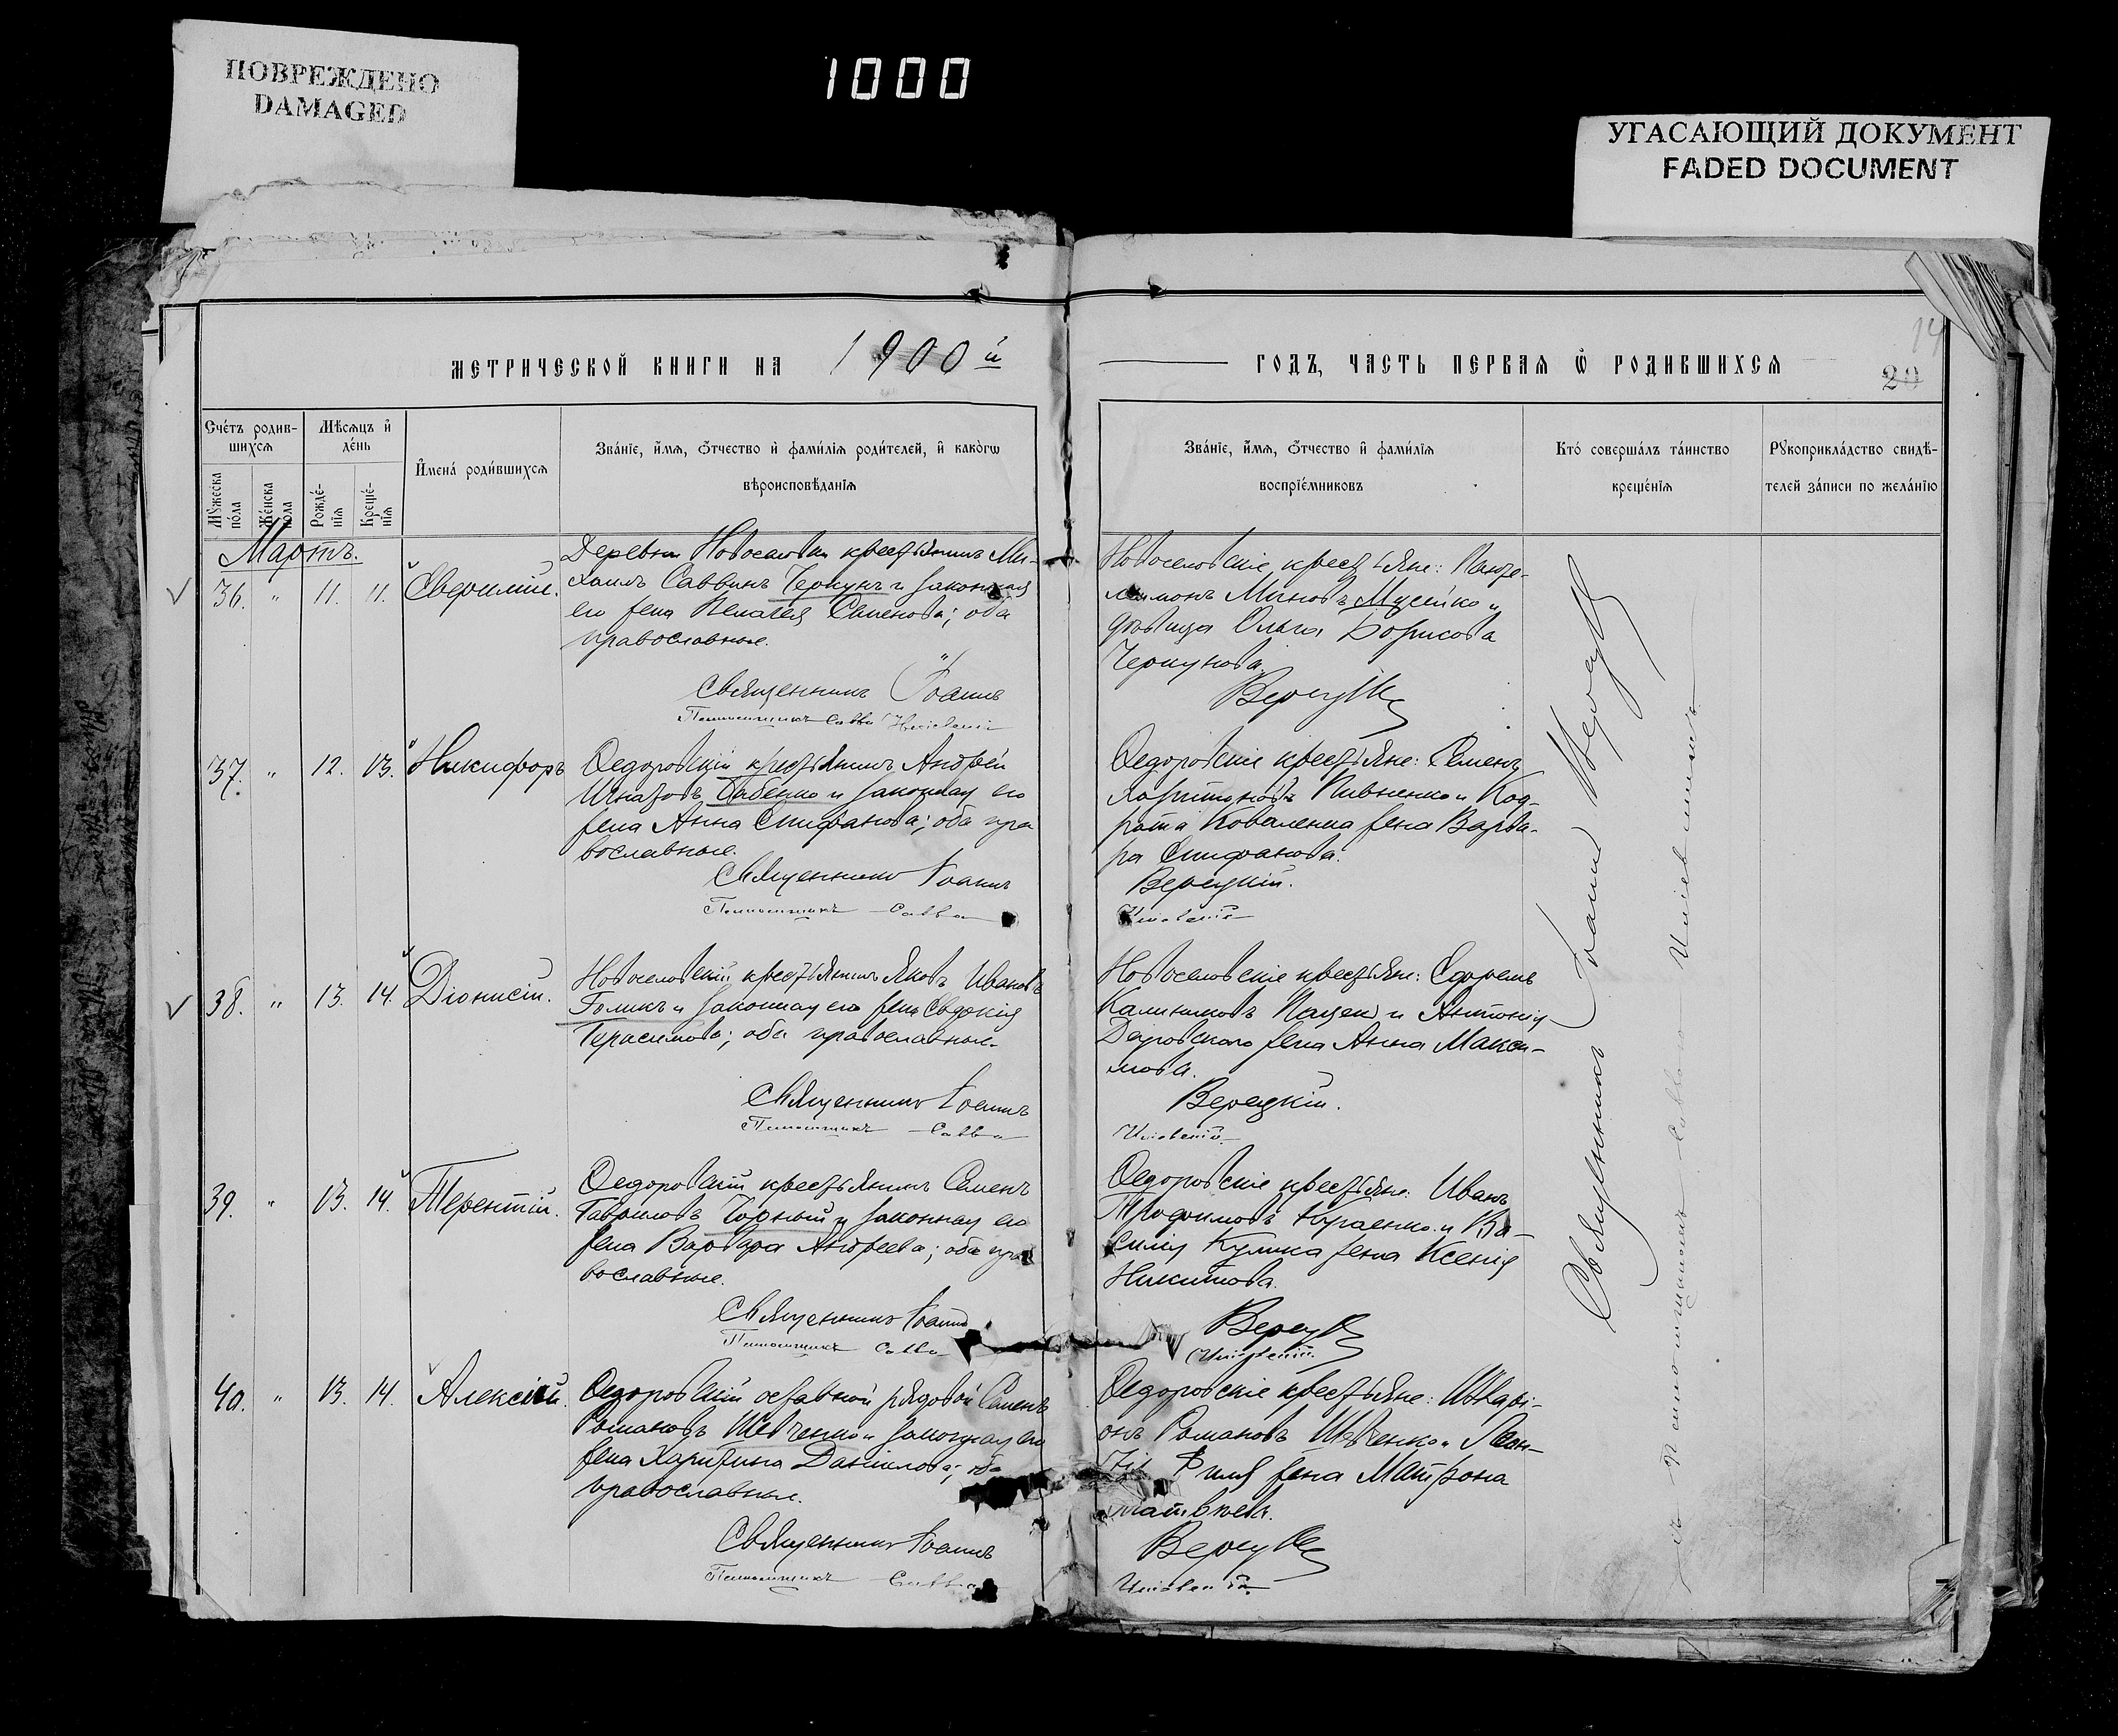 ПОВРЕЖДЕНО
DAMAGED
1000
УГАСАЮЩИЙ ДОКУМЕНТ
FADED DOCUMENT
МЕТРИЧЕСКОЙ КНИГИ НА 1900й
ГОДЪ, ЧАСТЬ ПЕРВАЯ Ѡ РОДИВШИХСЯ
14
20
Сче́тъ родив-
шихся
Мѣсяцъ и҆
де́нь
И҆мена̀ роди́вшихся
Зва́нїе, и҆́мя, ѻ҆́тчество и҆ фами́лїя роди́телей, и҆ како́гѡ
вѣроисповѣ́данїя
Мꙋ́жеска
по́ла
Же́нска
по́ла
Рожде́-
нїя
Креще́-
нїя
Зва́нїе, и҆́мя, ѻ҆́тчество и҆ фами́лїя
воспрїе́мниковъ
Кто́ соверша́лъ та́инство
креще́нїя
Рꙋкоприкла́дство свидѣ́-
телей за́писи по жела́нїю
Мартъ.
36. " 11. 11.
Деревни Новоселовки крестьянинъ Ми-
хаилъ Саввинъ Черкунъ и законная
его жена Пелагея Семенова; оба
православные.
Священникъ Іоаннъ
Псаломщикъ Савва
Новоселовскіе крестьяне: Панте-
лимонъ Миновъ Мусейко и
дѣвица Ольга Борисова
Черкунова.
Верецкій
37. " 12. 13. Никифоръ
Ѳедоровскій крестьянинъ Андрей
Игнатовъ Бабенко и законная его
жена Анна Епифанова; оба пра
вославные.
Священникъ Іоаннъ
Псаломщикъ Савва
Ѳедоровскіе крестьяне: Семенъ
Харитоновъ Пивненко и Код-
рата Коваленка жена Варва-
ра Епифанова.
Верецкій.
38. " 13. 14. Діонисій.
Новоселовскій крестьянинъ Яковъ Ивановъ
Голикъ и законная его жена Евдокія
Герасимова; оба православные.
Священникъ Іоаннъ
Псаломщикъ Савва
Новоселовскіе крестьяне: Ефремъ
и Антонія
жена Анна Макси-
мова.
Верецкій.
39. " 13. 14. Терентій.
Ѳедоровскій крестьянинъ Семенъ
Гавриловъ и законная его
жена Варвара Андреева; оба пра
вославные.
Священникъ Іоаннъ
Псаломщикъ Савва
Ѳедоровскіе крестьяне: Иванъ
Трофимовъ и Ва-
силія Кулика жена Ксенія
Никитова.
Верецкій
40. " 13. 14. Алексій.
Ѳедоровскій оставной рядовой Семенъ
Романовъ Шевченко и законная его
жена Харитина Даніилова; оба
православные.
Священникъ Іоаннъ
Псаломщикъ Савва
Ѳедоровскіе крестьяне:
онъ Романовъ Шевченко и Леон-
жена Матрона
Матвѣева.
Верецкій
Священникъ Іоаннъ Верецкій
съ псаломщикомъ Саввою